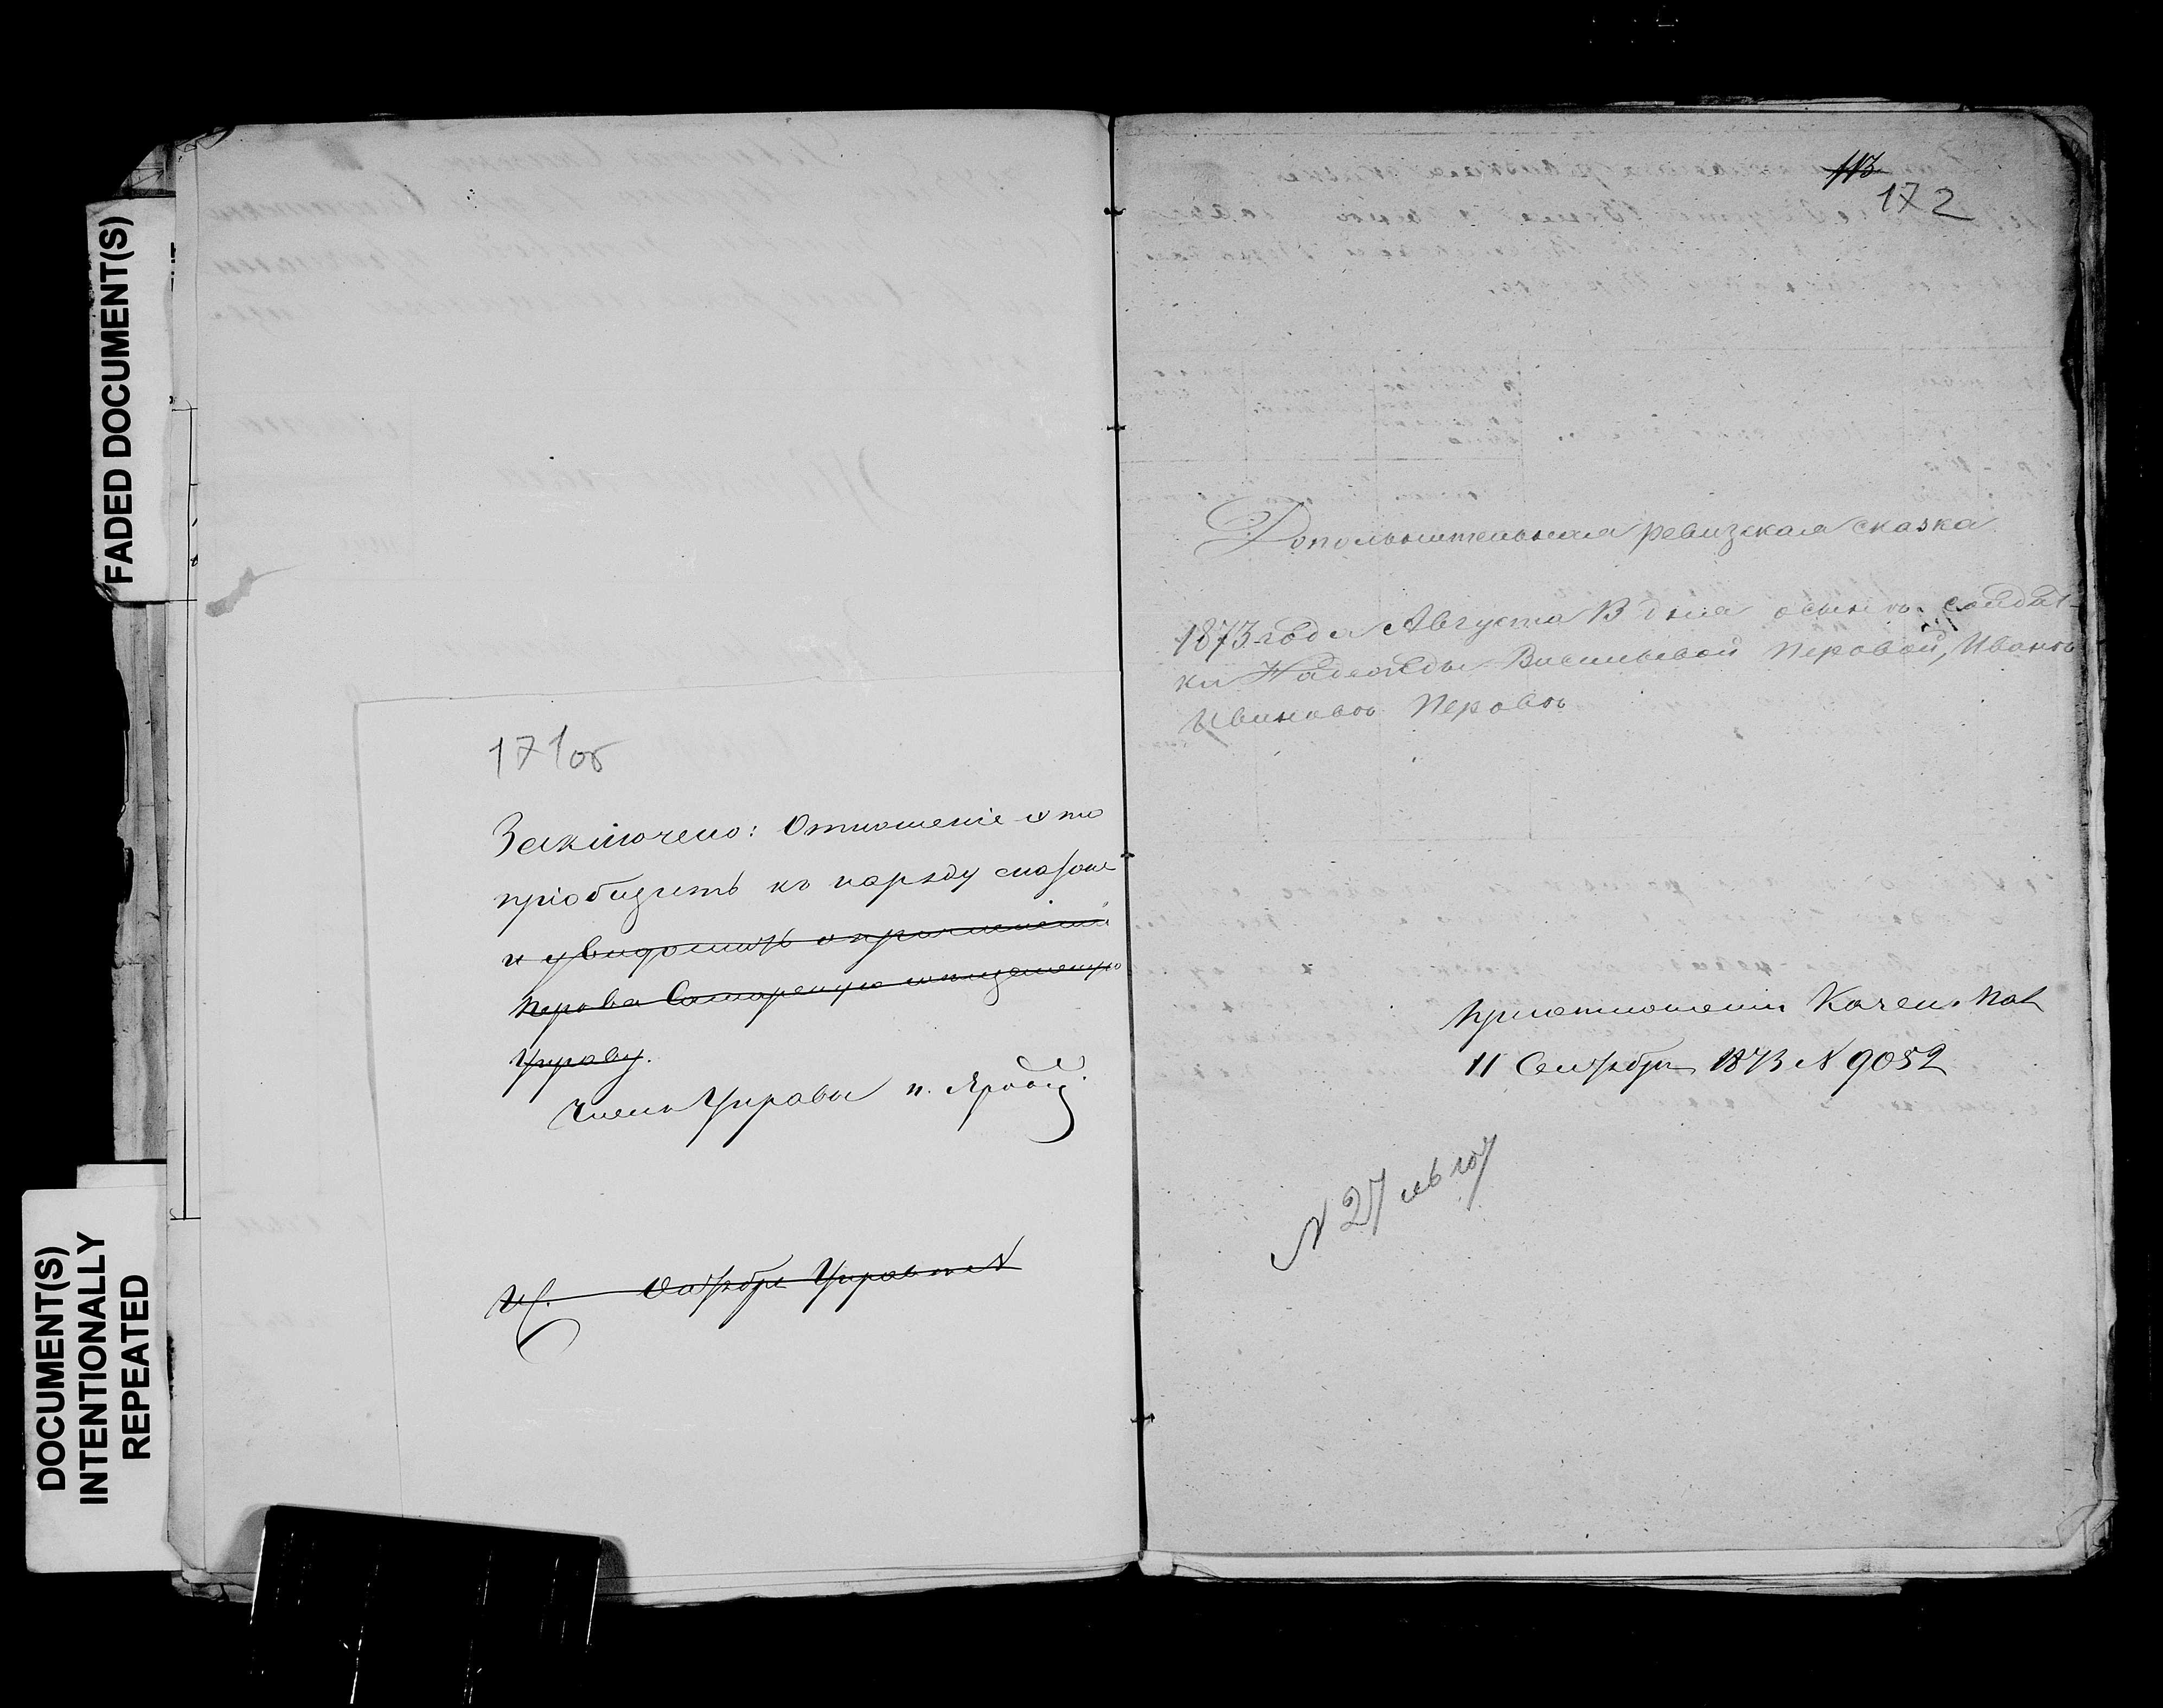 FADED DOCUMENT(S)
DOCUMENT(S)
INTENTIONALLY
REPEATED
171об
Заключено: Отношеніе это
пріобщить къ наряду сказокъ
и увѣдомить о причисленіи
Перова Самарскую мѣщанскую
Управу.
Членъ Управы П.
Октября Управою N
113
172
Дополнительная ревизская сказка
1873 года Августа 13 дня о сынѣ солдат-
ки Надежды Васильевой Перовой, Иванѣ
Ивановѣ Перовѣ
При отношеніи Казен. Пал
11 Сентября 1873 N 9052
N 27